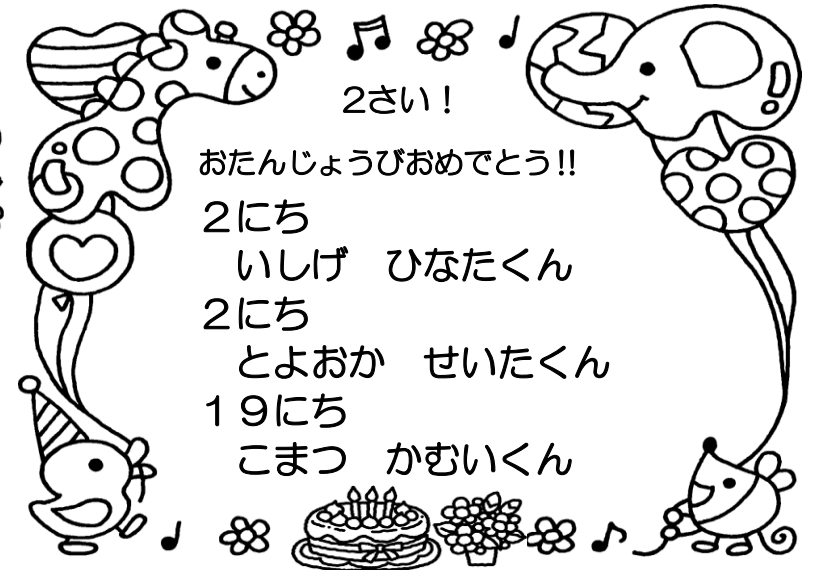 ２さい！
おたんじょうびおめでとう!!
２にち
いしげ　ひなたくん
２にち
とよおか　せいたくん
１９にち
こまつ　かむいくん